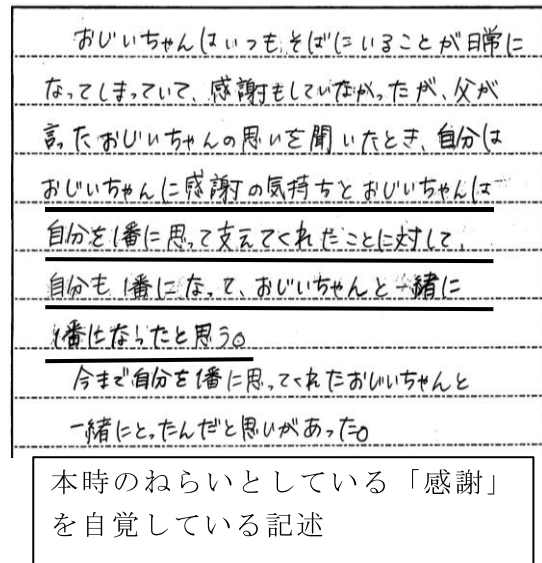 おじいちゃんはいつもそばにいることが日常に
なってしまっていて、感謝もしていなかったが、父が
言ったおじいちゃんの思いを聞いたとき、自分は
おじいちゃんに感謝の気持ちとおじいちゃんは
自分を1番に思って支えてくれたことに対して、
自分も1番になって、おじいちゃんと一緒に
1番になったと思う。
今まで自分を1番に思ってくれたおじいちゃんと
一緒にとったんだと思いがあった。
本時のねらいとしている「感謝」
を自覚している記述